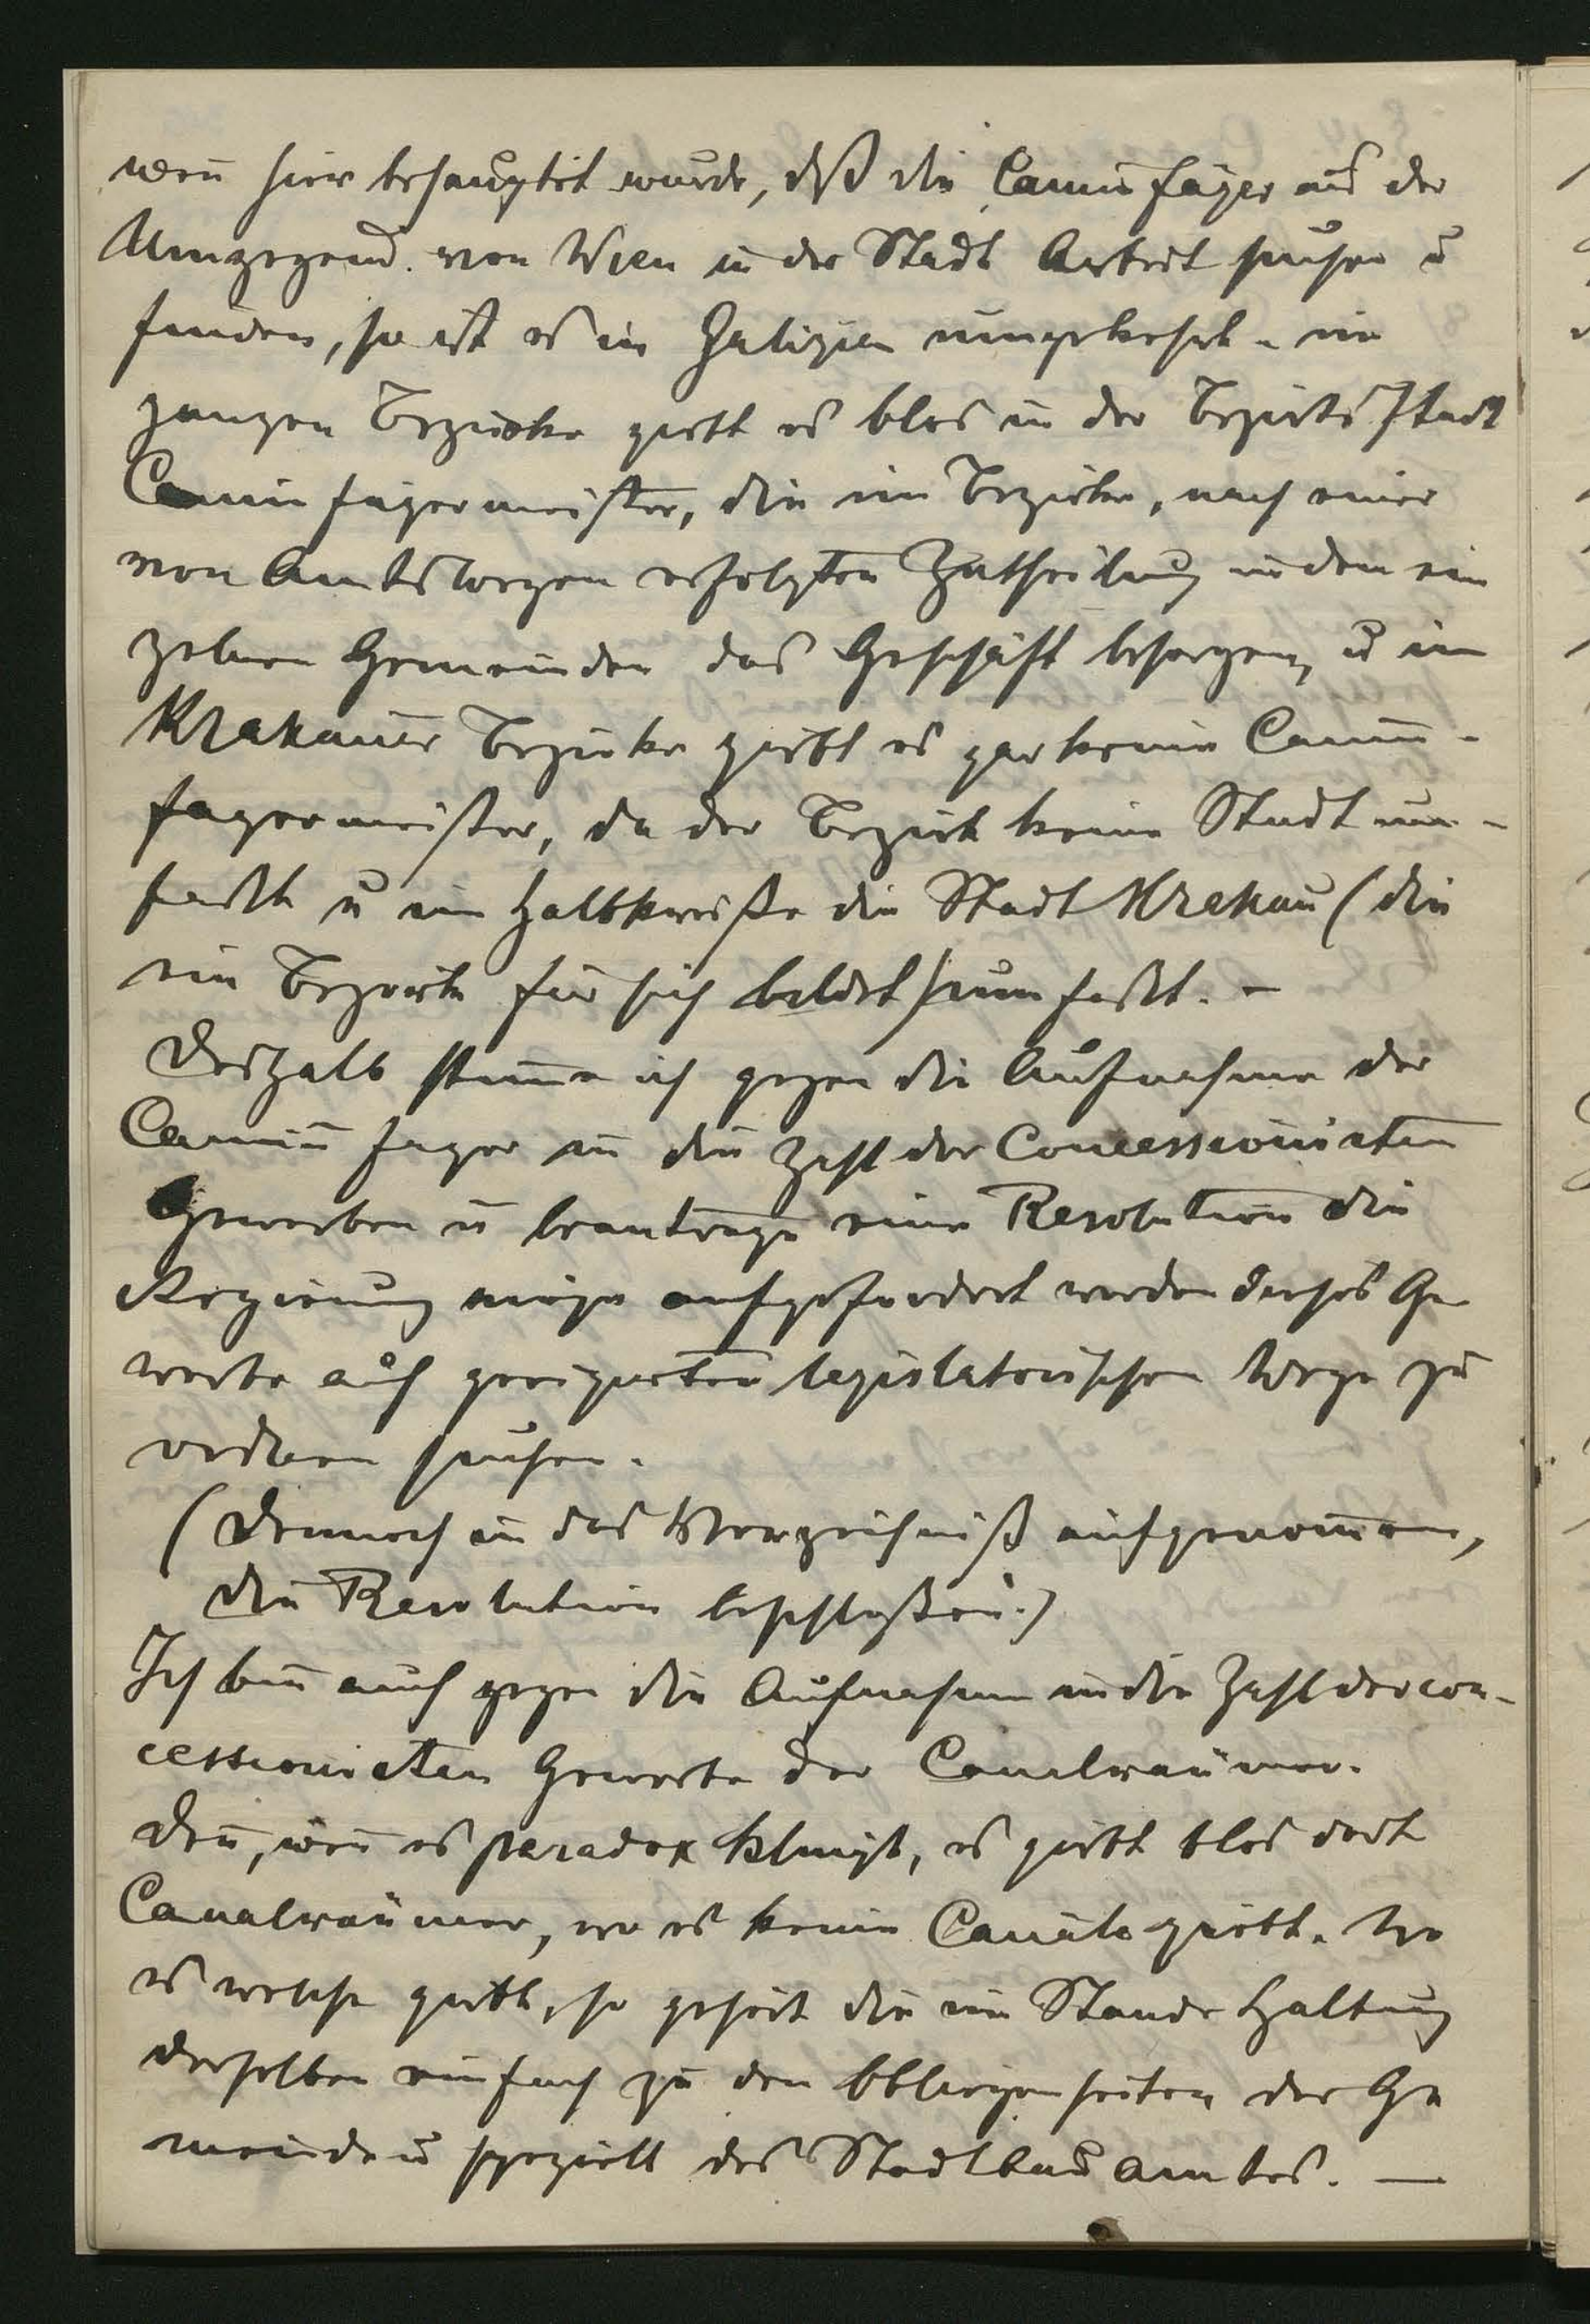 wenn hier behauptet wurde, daß die Caminfäger aus der
Umgegend von Wien in der Stadt Arbeit suchen u
finden, so ist es in Galizien umgekehrt – im
ganzen Bezirke giebt es blos in der Bezirksstadt
Caminfägermeister, die im Bezirke, nach einer
von Amtswegen erfolgten Zutheilung in den ein
zelnen Gemeinden das Geschäft besorgen, u im
Krakauer Bezirke giebt es gar keine Camin-
fegermeister, da der Bezirk keine Stadt um-
faßt u im Halbkreiße die Stadt Krakau (die
ein Bezirk für sich bildet) umfaßt. –
Deshalb stimme ich gegen die Aufnahme der
Caminfeger in die Zahl der Concessionirten
Gewerben u beantrage eine Resolution die
Regierung möge aufgefordert werden dieses Ge
werbe auf geeigneten legislatorischen Wege zu
ordnen suchen.
(Dennoch in das Verzeichniß aufgenommen,
die Resolution beschloßen.)
Ich bin auch gegen die Aufnahme in die Zahl der con-
cessionirten Gewerbe der Canalräumer.
Denn, wenn es paradox klingt, es giebt blos dort
Canalräumer, wo es keine Canäle giebt. Wo
es welche giebt, so gehört die im Stande Haltung
derselben einfach zu den Obliegenheiten der Ge
meinde u speziell des Stadtbauamtes. —